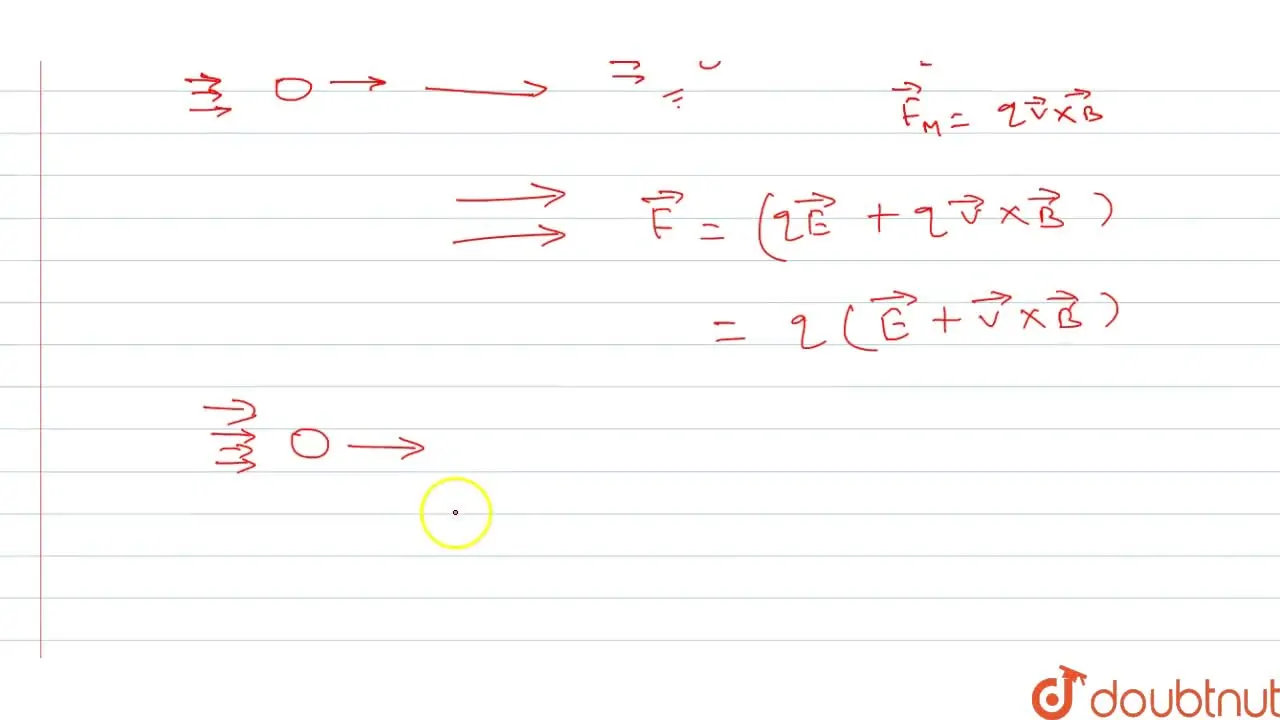 F⃗_M = qv⃗×B⃗
F⃗ = (qE⃗ + qv⃗×B⃗)
= q(E⃗ + v⃗×B⃗)
doubtnut